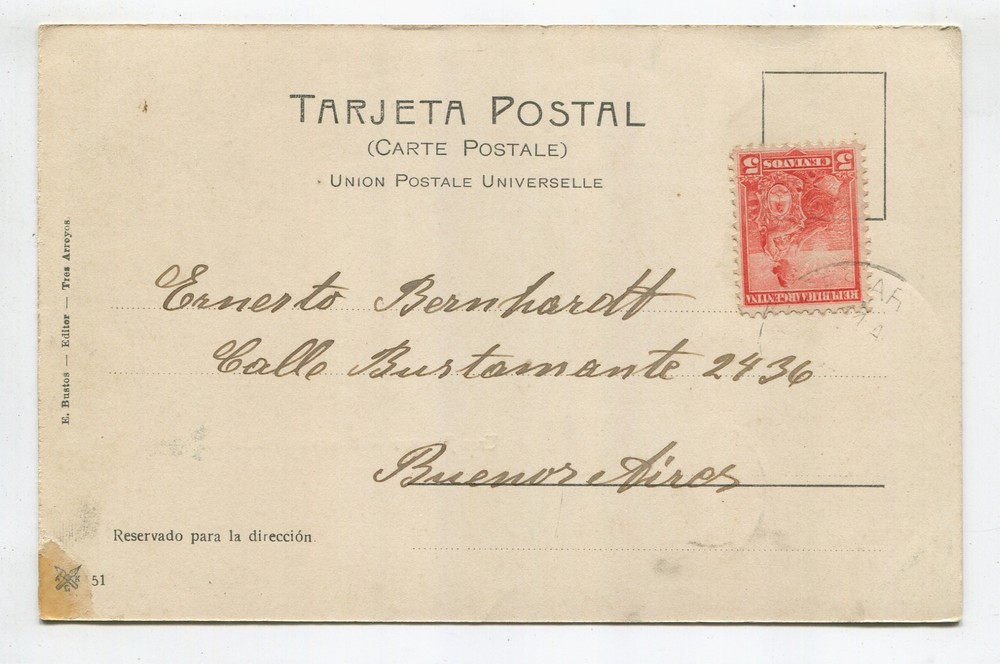 TARJETA POSTAL
(CARTE POSTALE)
UNION POSTALE UNIVERSELLE
5 CENTAVOS 5
REPUBLICA ARGENTINA
Ernesto Bernhardt
Calle Bustamante 2436
Buenos Aires
Reservado para la dirección.
51
E. Bustos — Editor — Tres Arroyos.